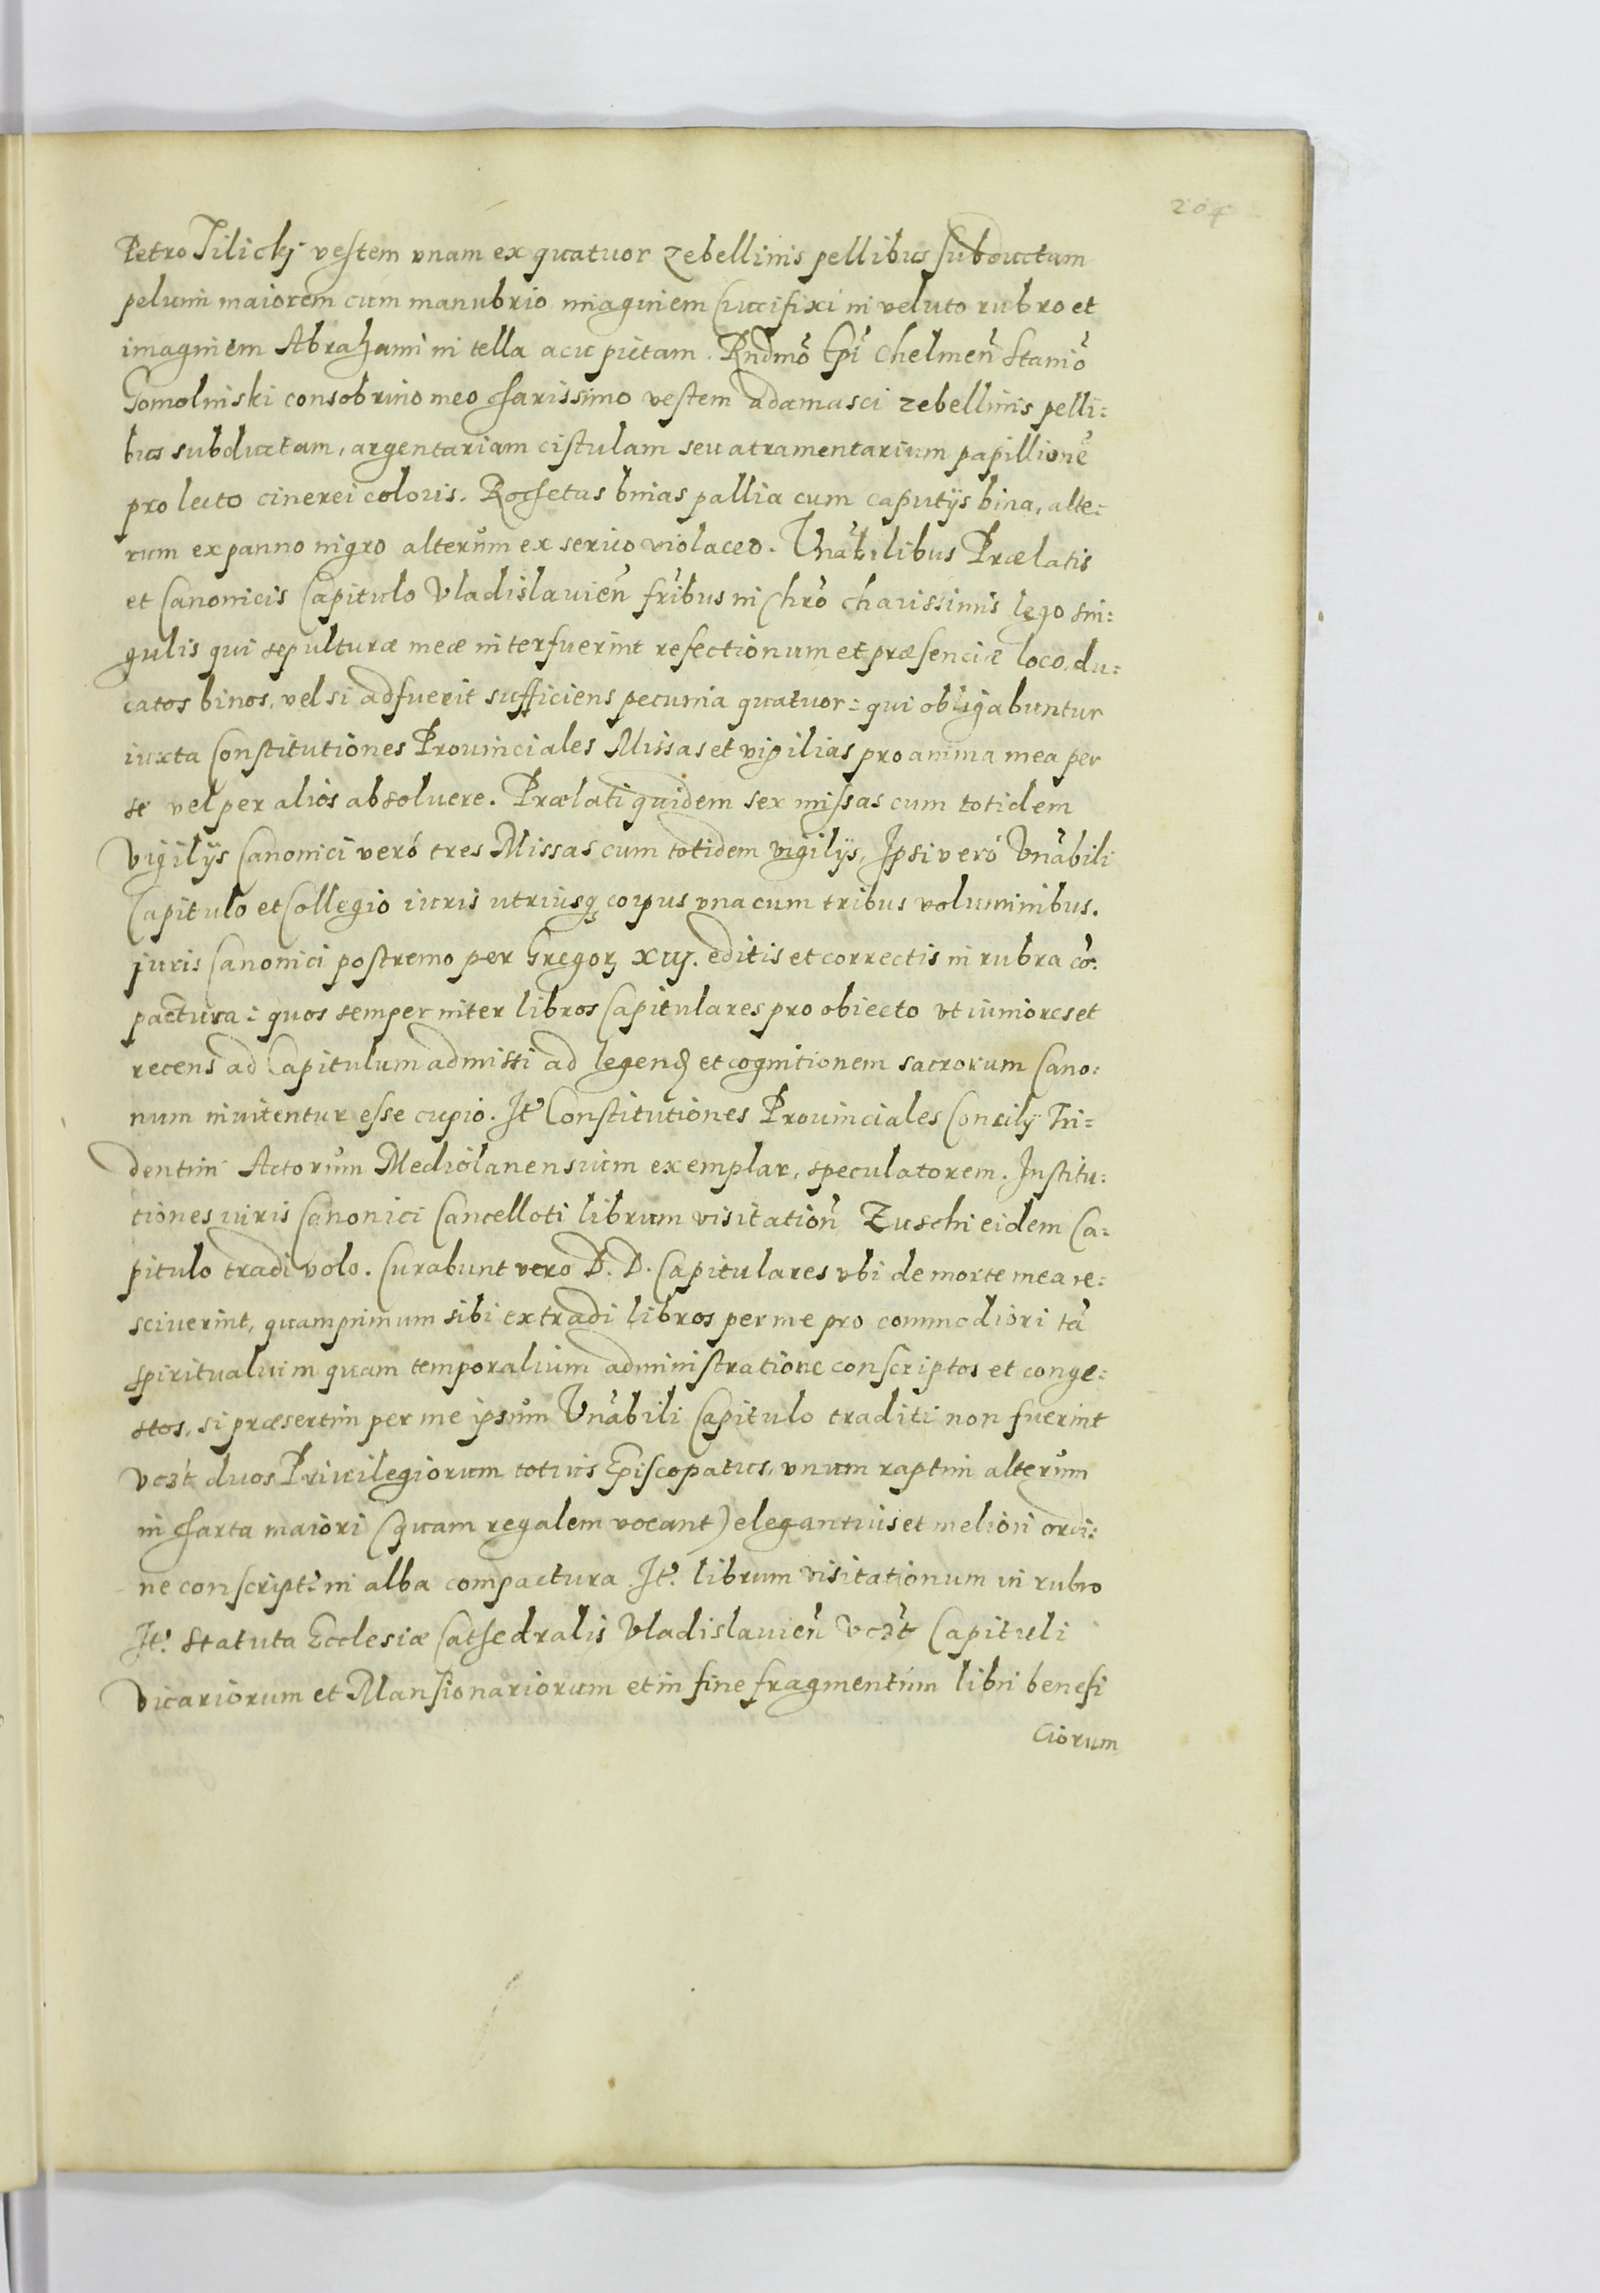 204
Petro Tilickj vestem vnam ex quatuor zebellinis pellibus subductam
peluim maiorem cum manubrio imaginem Crucifixi in veluto rubro et
imaginem Abrahami in tella acu pictam. Rndmo͂ Epi͂ Chelmen͂ Stanio͂
Gomolinski consobrino meo charissimo vestem adamasci zebellinis pelli:
bus subductam, argentariam cistulam seu atramentarium papillione͂
pro lecto cinerei coloris. Rochetas binas pallia cum caputijs bina, alte:
rum ex panno nigro alterum ex serico violaceo. Vna͂bilibus Prælatis
et Canonicis Capitulo Vladislauien͂ fr͂ibus in Chr͂o charissimis lego sin:
gulis qui sepulturæ meæ interfuerint refectionum et præsenciæ loco, du:
catos binos, vel si adfuerit sufficiens pecunia quatuor: qui obligabuntur
iuxta Constitutiones Prouinciales Missas et vigilias pro anima mea per
se vel per alios absoluere. Prælati quidem sex missas cum totidem
Vigilijs Canonici veró tres Missas cum totidem vigilijs, Ipsi veró Vna͂bili
Capitulo et Collegio iuris utriusq; corpus vna cum tribus voluminibus.
juris Canonici postremo per Gregor XIIJ. editis et correctis in rubra co͂:
pactura: quos semper inter libros Capitulares pro obiecto vt iuniores et
recens ad Capitulum admissi ad legend et cognitionem sacrorum Cano:
num inuitentur esse cupio. It͂ Constitutiones Prouinciales Concilij Tri=
dentini Actorum Mediolanensium exemplar, speculatorem. Institu:
tiones iuris Canonici Cancelloti librum visitation͂ Zuschi eidem Ca:
pitulo tradi volo. Curabunt vero D. D. Capitulares vbi de morte mea re:
sciuerint, quamprimum sibi extradi libros per me pro commodiori ta͂
spiritualium quam temporalium administratione conscriptos et conge:
stos, si præsertim per me ipsum Vna͂bili Capitulo traditi non fuerint
vczt duos Priuilegiorum totius Episcopatus, vnum raptim alterum
in charta maiori (quam regalem vocant) elegantius et meliori ordi:
ne conscript͂ in alba compactura It͂. librum visitationum in rubro
It͂. Statuta Ecclesiæ Cathedralis Vladislauien͂ vcz͂t Capituli
Vicariorum et Mansionariorum et in fine fragmentum libri benefi
ciorum